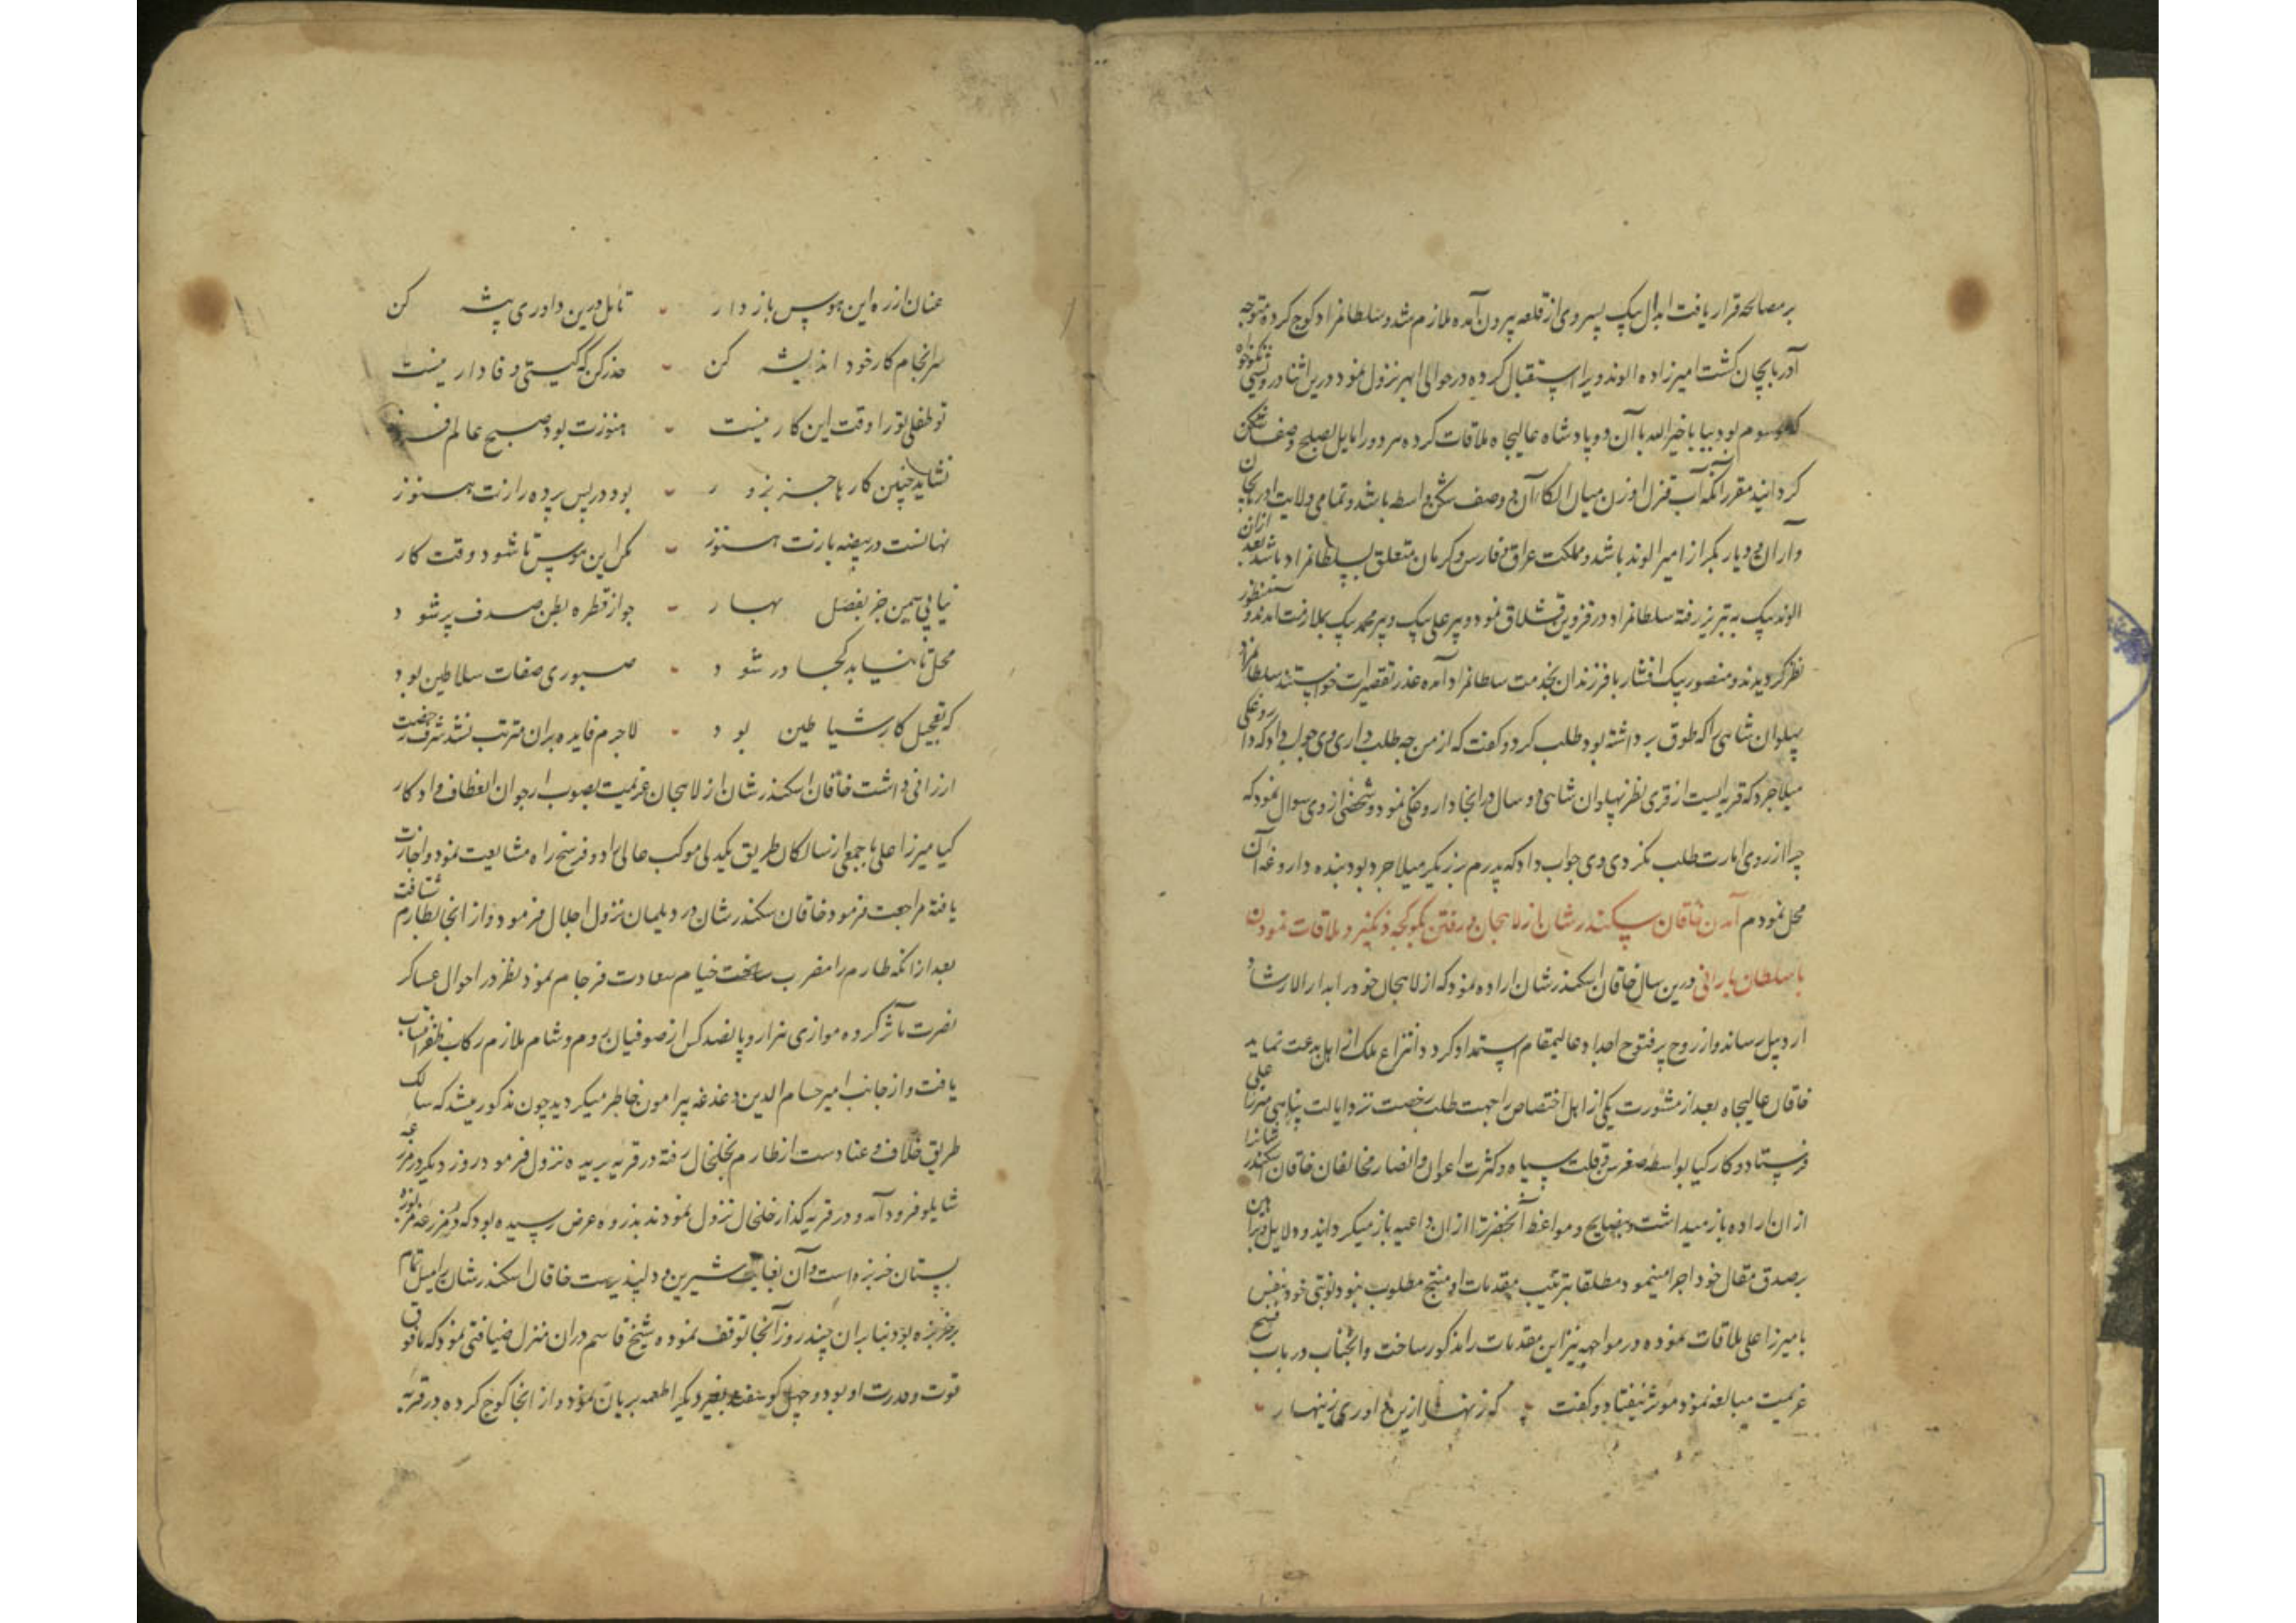 بر مصالحه قرار یافت ابدال بیک پسر وی از قلعه بیرون آمده ملازم شد و سلطانمراد کوچ کرده متوجه
آذربایجان گشت امیرزاده الوند ویرا استقبال کرده در حوالی ابهر نزول نمود درین اثنا درویشی نیکخواه
که موسوم بود ببابا خیرالله با آن دو پادشاه عالیجاه ملاقات کرده هر دو را مایل بصلح وصف شکن
کردانید مقرر آنکه آب قزل اوزن میان الکاء آن دو صف شکن واسطه باشد و تمامی ولایت اذربایجان
واران و دیار بکر از امیر الوند باشد و مملکت عراق و فارس و کرمان متعلق بسلطانمراد باشد بعد ازان
الوند بیک به تبریز رفته سلطانمراد در قزوین قشلاق نمود و پیر علی بیک و پیر محمد بیک بملازمت امدند و منظور
نظر کردیدند و منصور بیک افشار با فرزندان بخدمت سلطانمراد آمده عذر تقصیرات خواستند سلطانمراد
پهلوان شاهی را که طوق برداشته بود طلب کرد و کفت که از من چه طلب داری وی جواب داد که داروغکی
میلاجرد که قریه ایست از قری نظر پهلوان شاهی دو سال در انجا داروغکی نمود و شخضی از وی سوال نمود که
چرا از روی امارت طلب نکردی وی جواب داد که پدرم برزیکر میلاجرد بود بنده داروغه آن
محل نمودم آمدن خاقان سکندرشان از لاهجان و رفتن بکوکجه دنکیز و ملاقات نمودن
با سلطان بارانی درین سال خاقان اسکندرشان اراده نمود که از لاهجان خود را بدار الارشاد
اردبیل رساند و از روح پرفتوح اجداد عالیمقام استمداد کرد و انتزاع ملک از اهل بدعت نماید
خاقان عالیجاه بعد از مشورت یکی از اهل اختصاص را جهت طلب رخصت نزد ایالت پناهی میرزا علی
فرستاد و کارکیا بواسطه صغر سن و قلت سپاه و کثرت اعوان و انصار مخالفان خاقان اسکندر شانرا
از ان اراده باز میداشت و بنصایح و مواعظ آنحضرترا از ان داعیه باز میکردانید و دلایل و براهین
بر صدق مقال خود اجرا مینمود مطلقا ترتیب مقدمات او منتج مطلوب نبود نوبتی خود بنفس
با میرزا علی ملاقات نموده در مواجهه نیز این مقدمات را مذکور ساخت و انجناب در باب فسخ
عزیمت مبالغه نمود موثر نیفتاد و کفت که زنهار ازین داوری زینهار
عنان از ره این هوس باز دار تامل درین داوری پیشه کن
سرانجام کار خود اندیشه کن حذر کن که کیتی وفادار نیست
تو طفلی تو را وقت این کار نیست هنوزت بود صبح عالم فروز
نشاید چنین کارها جز بزور بود در پس پرده رازت هنوز
نهانست در بیضه بازت هنوز مکن این هوس تا شود وقت کار
نیابی ثمین جز بفصل بهار چو از قطره بطن صدف پر شود
محل تا نیاید کجا در شود صبوری صفات سلاطین بود
که تعجیل کار شیاطین بود لاجرم فایده بران مترتب نشد شرف رخصت
ارزانی داشت خاقان اسکندر شان از لاهجان عزیمت بصوب ارجوان انعطاف داد کار
کیا میرزا علی با جمعی از سالکان طریق یکدلی موکب عالی را دو فرسخ راه مشایعت نمود و اجازت
یافته مراجعت فرمود خاقان سکندر شان در دیلمان نزول اجلال فرمود و از انجا بطارم شتافت
بعد از انکه طارم را مضرب ساخت خیام سعادت فرجام نمود نظر در احوال عساکر
نصرت مآثر کرده موازی هزار و پانصد کس از صوفیان روم و شام ملازم رکاب ظفر انتساب
یافت و از جانب امیر حسام الدین دغدغه پیرامون خاطر میکردید چون مذکور میشد که سالک
طریق خلاف و عنادست از طارم بخلخال رفته در قریه بریده نزول فرمود روز دیکر در مزرعه
شایلو فرود آمد و در قریه کذار خلخال نزول نمودند بذروه عرض رسیده بود که در مزرعه مزبوره
بستان خربزه است و آن بغایت شیرین و دلپذیرست خاقان اسکندرشان را میل تمام
بر خربزه بود بنابران چند روز آنجا توقف نموده شیخ قاسم دران منزل ضیافتی نمود که ما فوق
قوت و قدرت او بود و چهل کوسفند بغیر دیکر اطعمه بریان نمود و از انجا کوچ کرده در قریه